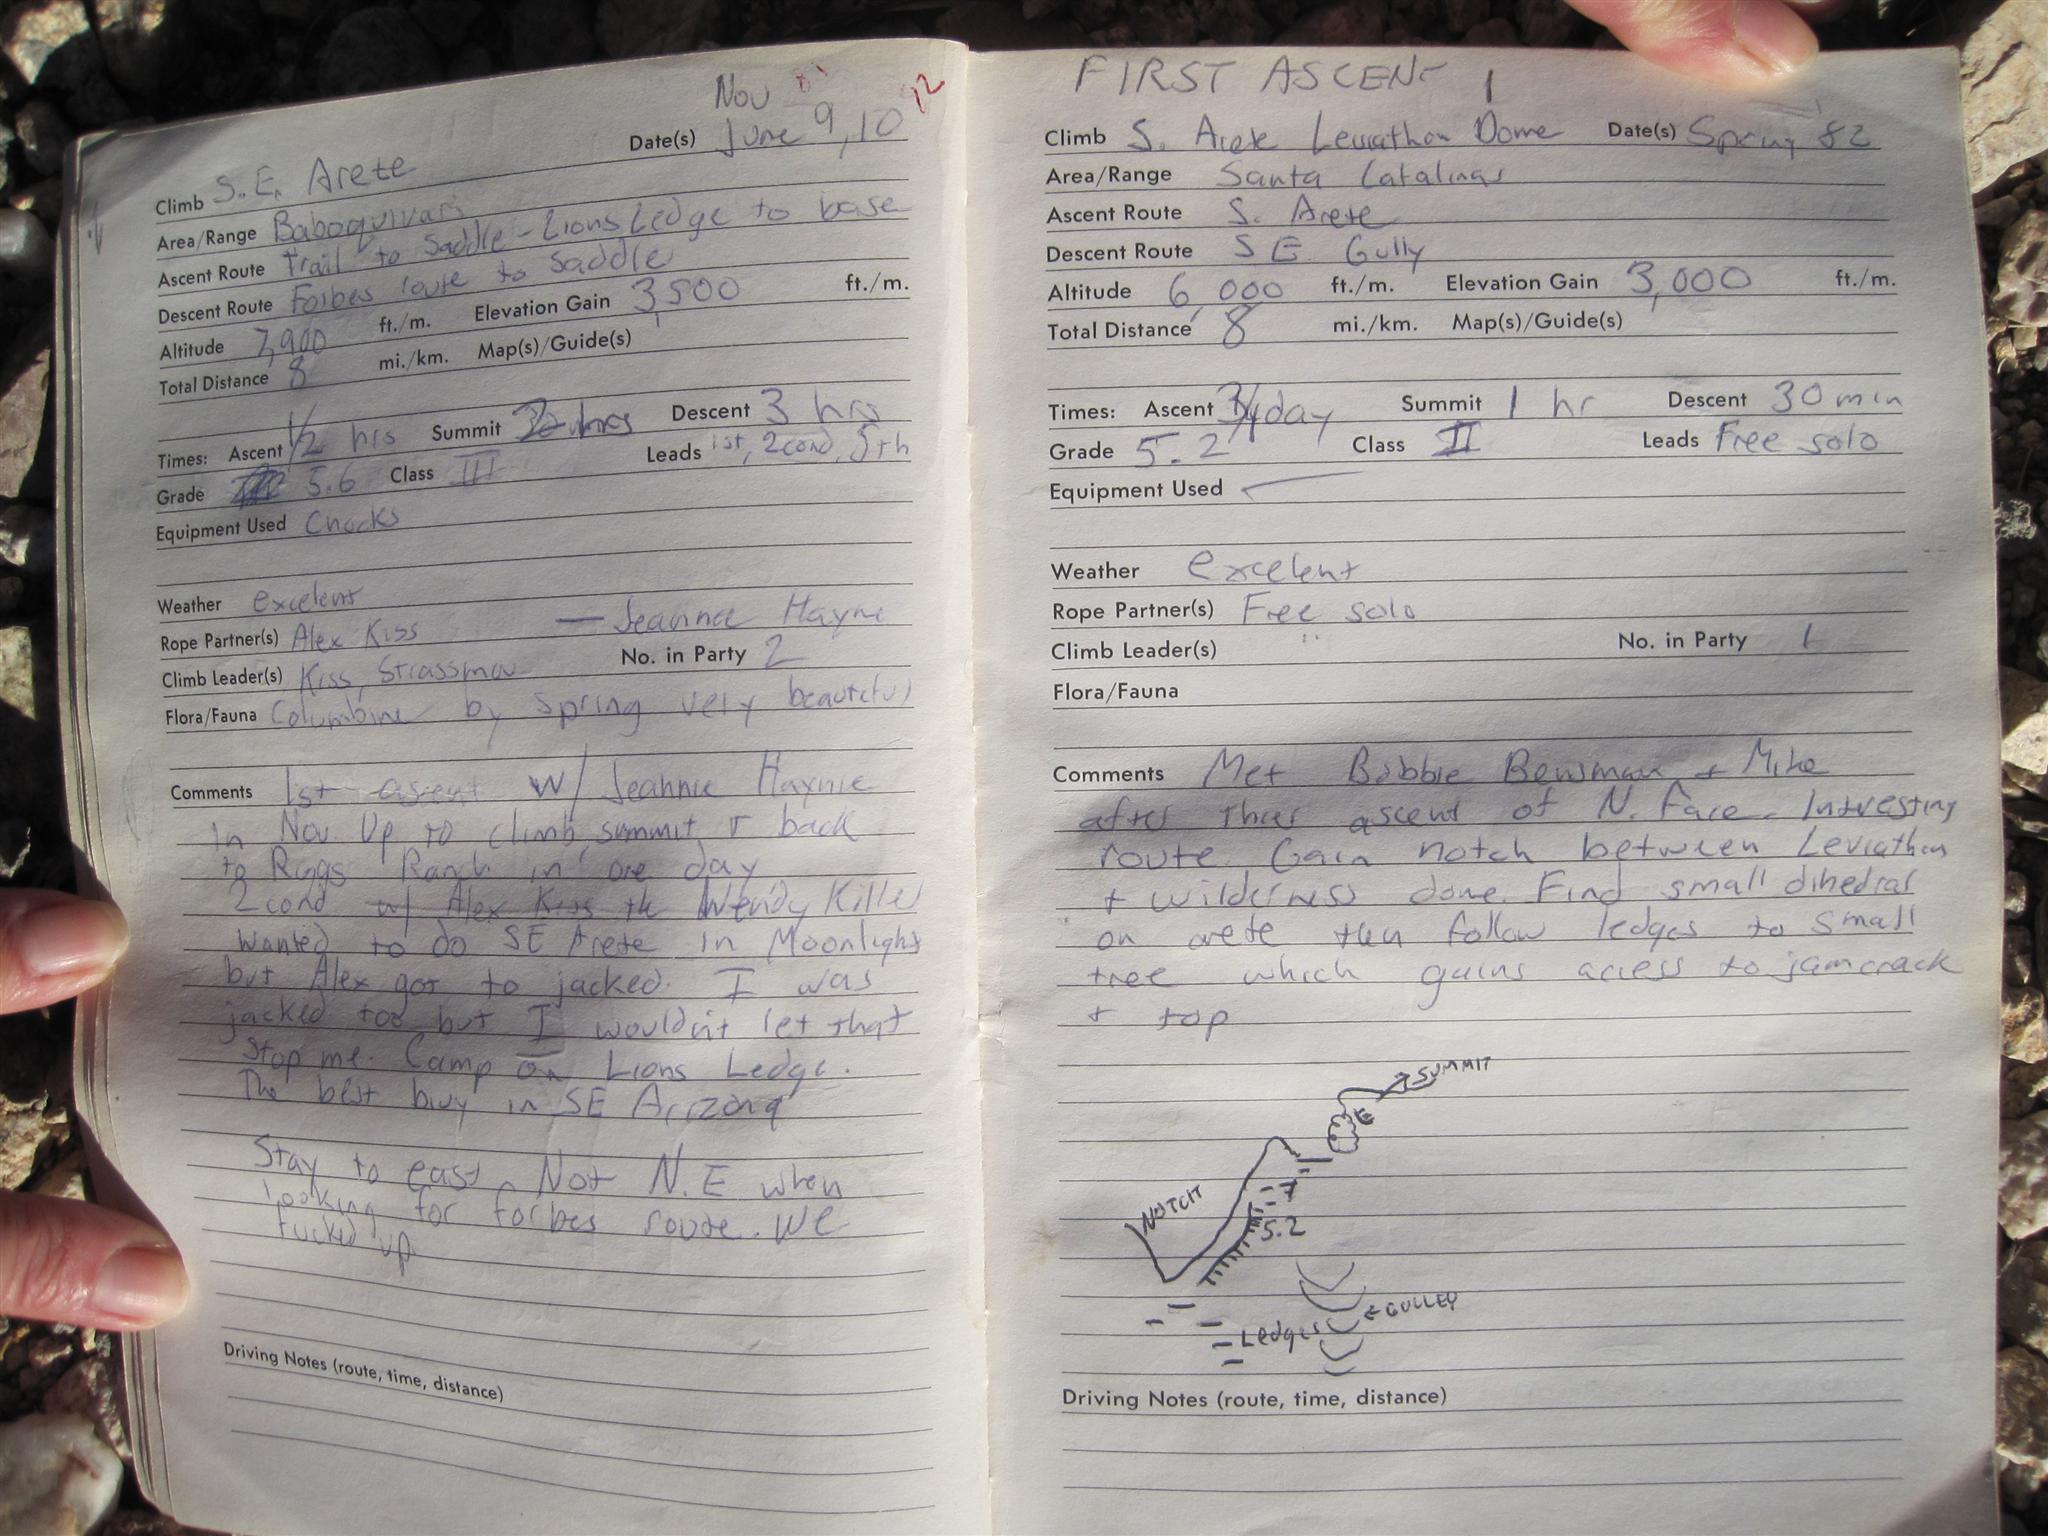 Nov 81
Date(s) June 9,10 82
Climb S.E. Arete
Area/Range Baboquivari
Ascent Route Trail to Saddle - Lions Ledge to base
Descent Route Forbes route to Saddle
Altitude 7,900 ft./m. Elevation Gain 3,500 ft./m.
Total Distance 8 mi./km. Map(s)/Guide(s)
Times: Ascent 1/2 hrs Summit hrs Descent 3 hrs
Grade 5.6 Class III Leads 1st, 2cond, 5th
Equipment Used Chocks
Weather excelent
Rope Partner(s) Alex Kiss — Jeannie Haynie
Climb Leader(s) Kiss, Strassman No. in Party 2
Flora/Fauna Columbine by Spring very beautiful
Comments 1st ascent w/ Jeannie Haynie
in Nov. Up to climb, summit + back
to Riggs Ranch in one day
2cond w/ Alex Kiss the Wendy Killer
Wanted to do SE Arete in Moonlight
but Alex got to jacked. I was
jacked too but I wouldn't let that
stop me. Camp on Lions Ledge.
The best bivy in SE Arizona
Stay to east Not N.E when
looking for forbes route. We
fucked up
Driving Notes (route, time, distance)
FIRST ASCENT 1
Climb S. Arete Leviathan Dome Date(s) Spring 82
Area/Range Santa Catalinas
Ascent Route S. Arete
Descent Route S E Gully
Altitude 6,000 ft./m. Elevation Gain 3,000 ft./m.
Total Distance 8 mi./km. Map(s)/Guide(s)
Times: Ascent 3/4 day Summit 1 hr Descent 30 min
Grade 5.2 Class II Leads Free solo
Equipment Used
Weather excelent
Rope Partner(s) Free solo
Climb Leader(s) " No. in Party 1
Flora/Fauna
Comments Met Bobbie Bensman + Mike
after thier ascent of N. Face. Intresting
route. Gain notch between Leviathan
+ wilderness dome. Find small dihedral
on arete then follow ledges to small
tree which gains access to jamcrack
+ top
SUMMIT
NOTCH
5.2
GULLEY
Ledges
Driving Notes (route, time, distance)